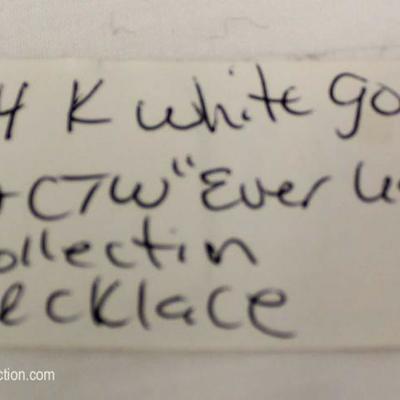 4 K white go
CTW "Ever U
ollectin
ecklace
ction.com